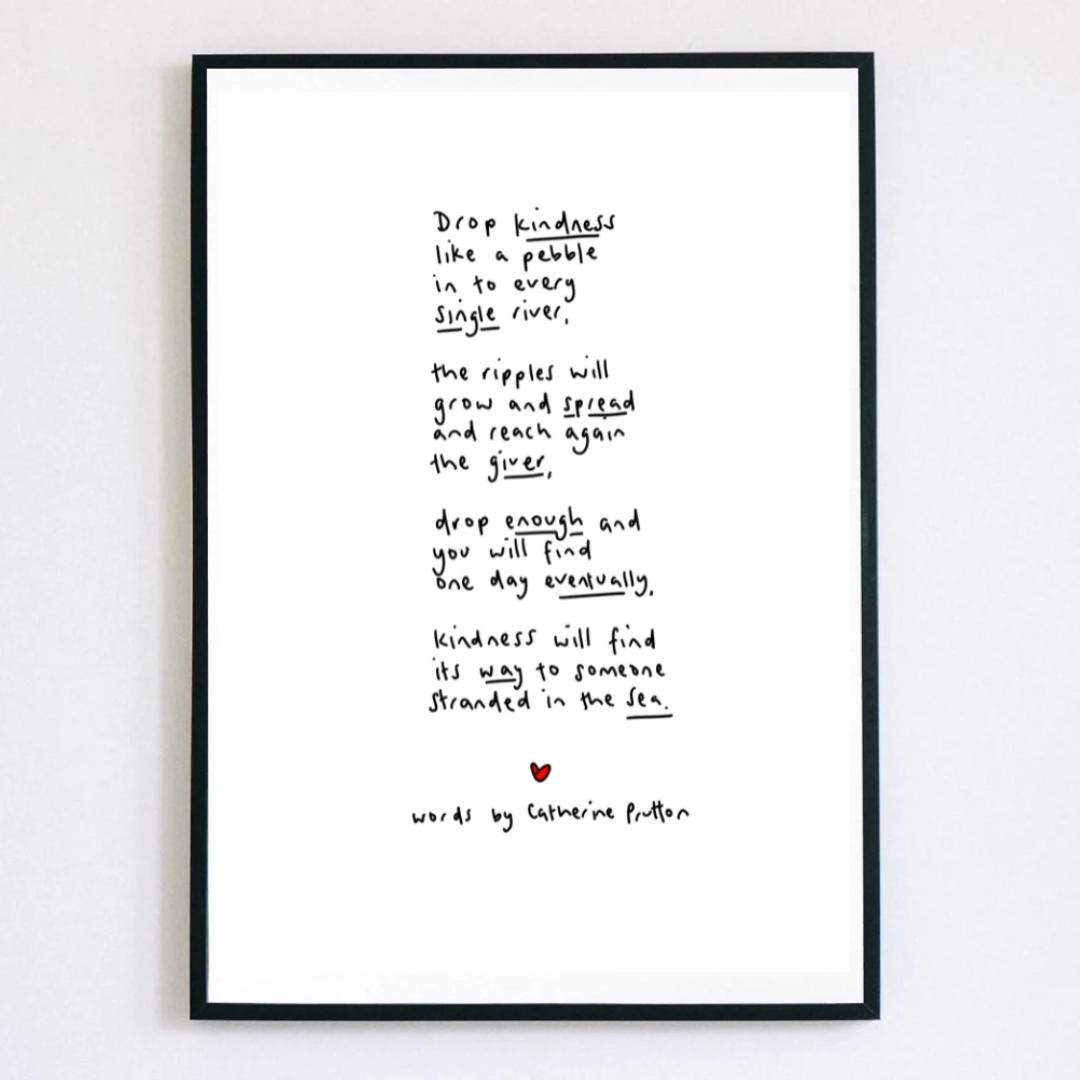 Drop kindness
like a pebble
in to every
single river,
the ripples will
grow and spread
and reach again
the giver,
drop enough and
you will find
one day eventually,
kindness will find
its way to someone
stranded in the sea.
words by Catherine Prutton